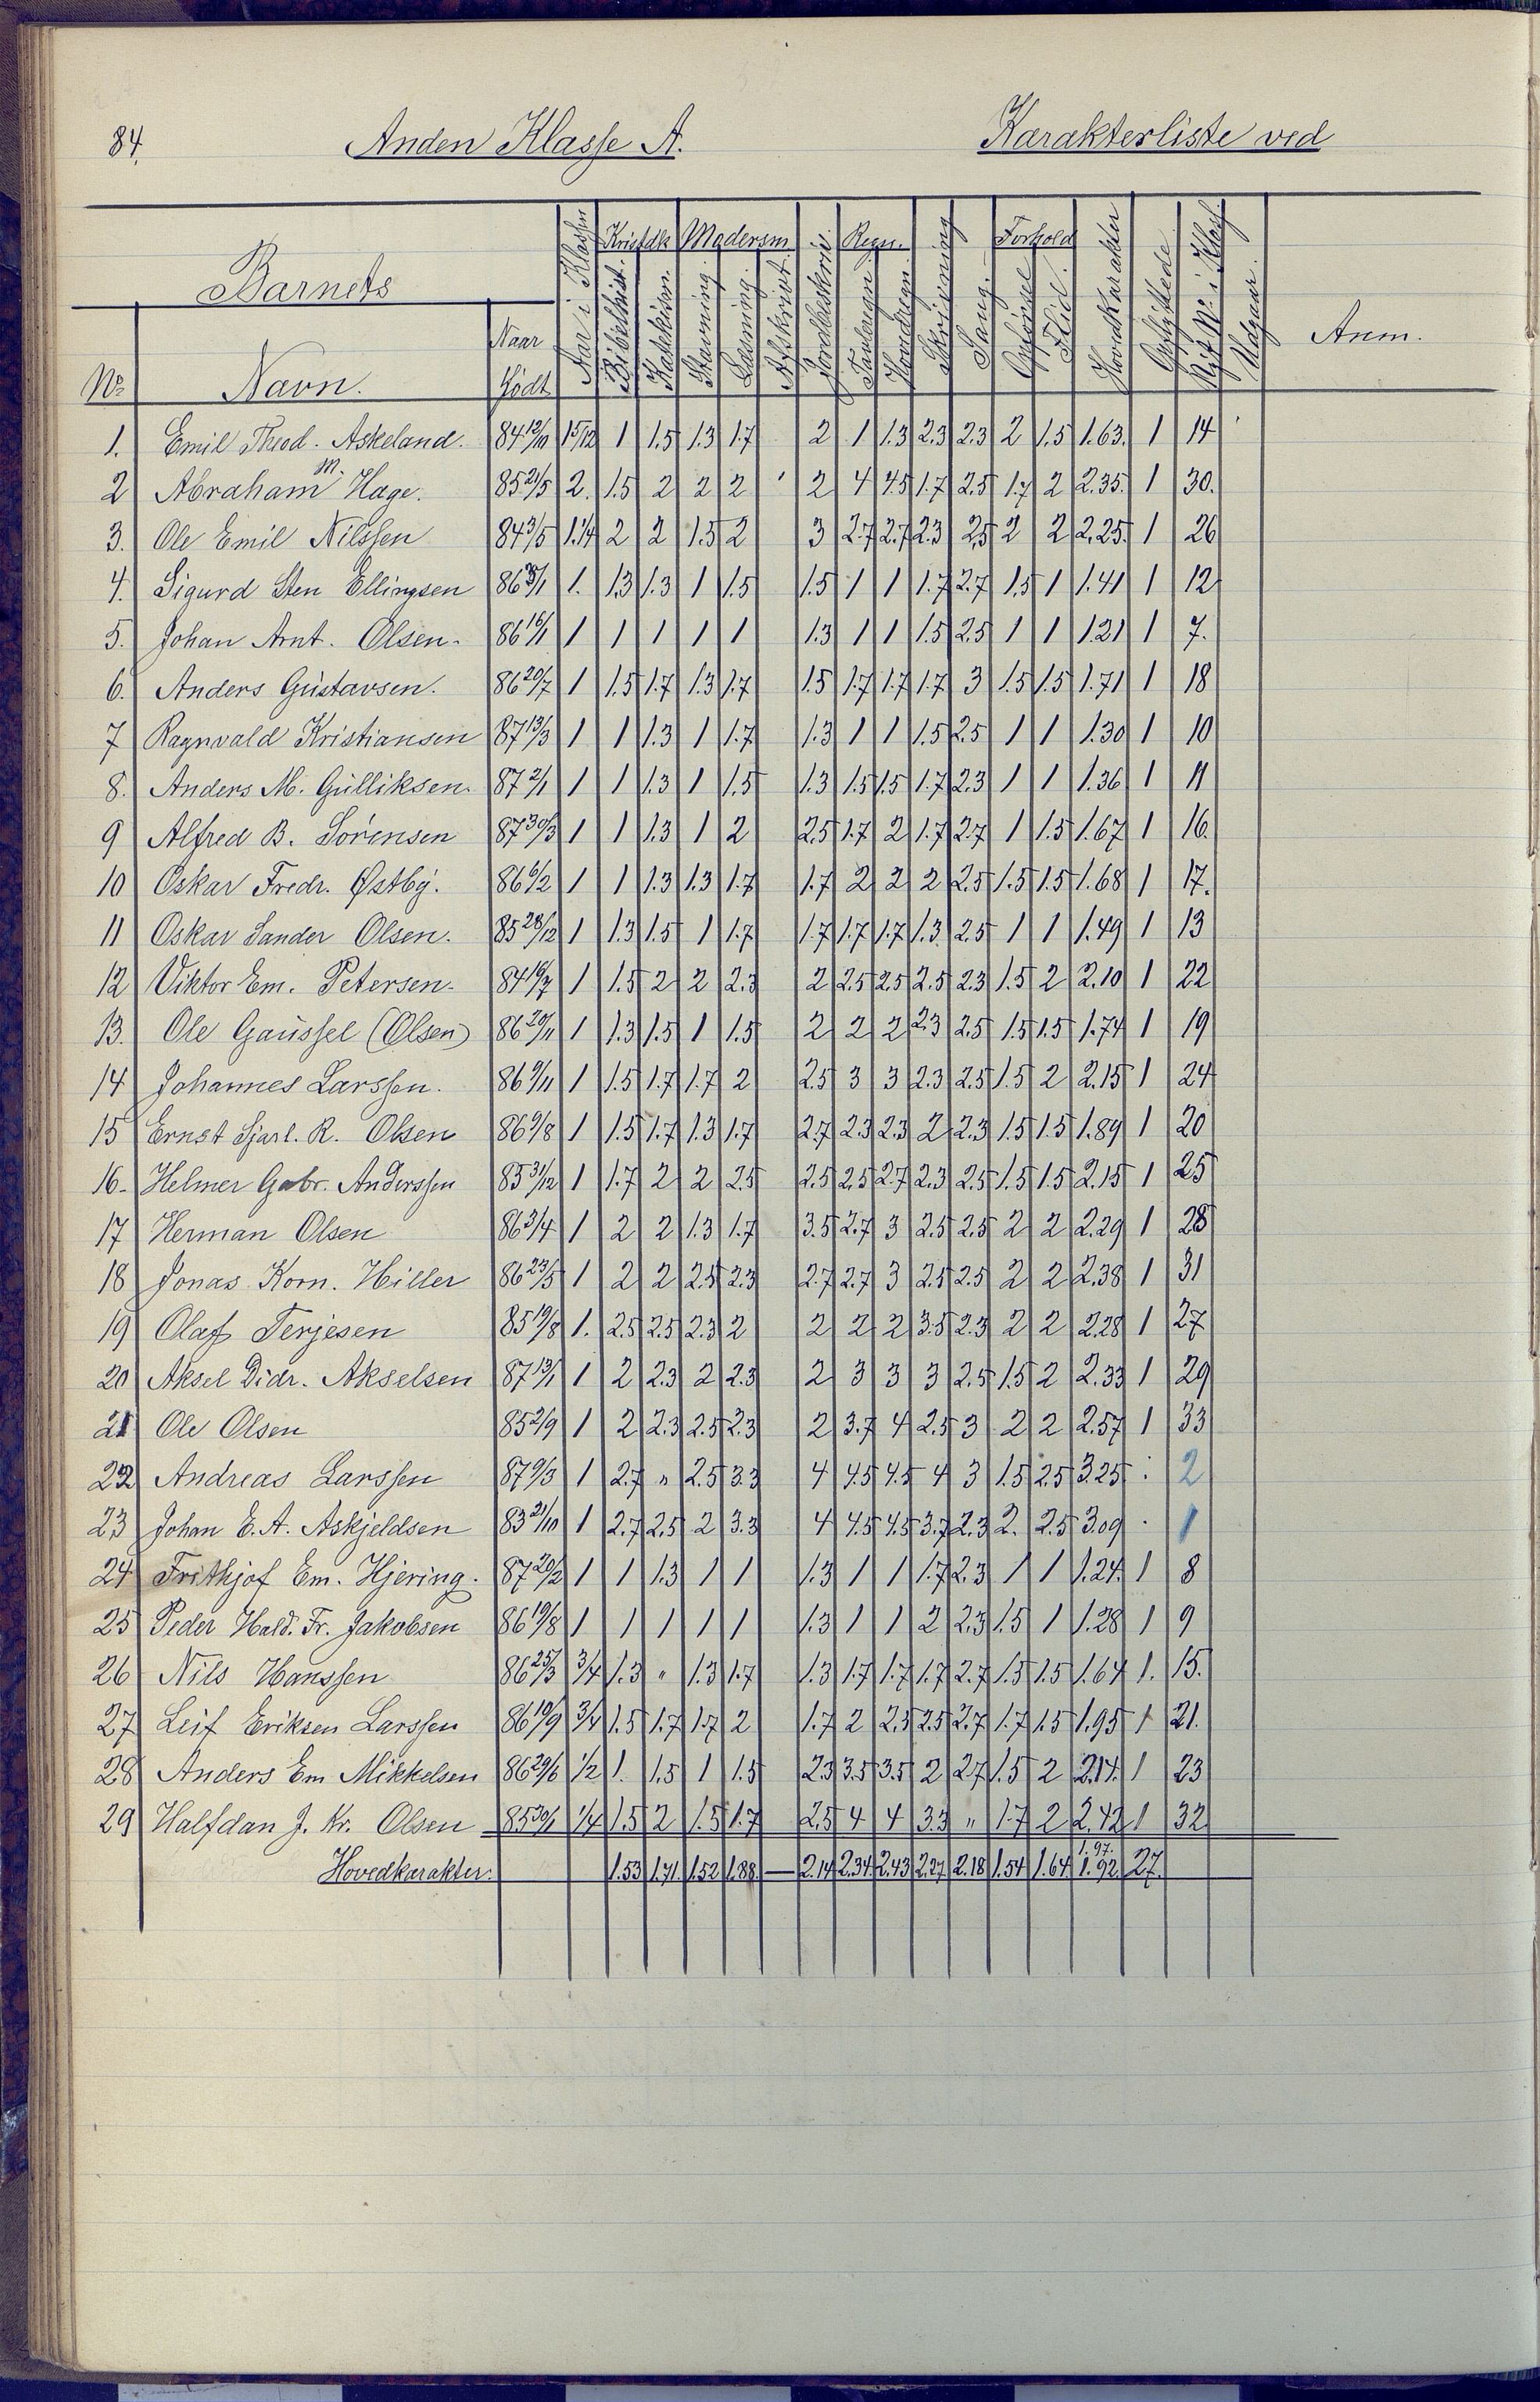 84.
Anden Klasse A.
Karakterliste ved
Barnets
Aar i Klassen
Kristdk
Modersm
Jordbeskriv.
Regn.
Skrivning
Sang.
Forhold
Hovedkarakter
Opflyttede
Nyt No i Klass
Udgaar.
Anm.
No
Navn.
Naar født
Bibelhist.
Katekism.
Stavning.
Læsning.
Afskrivt.
Tavleregn.
Hovedregn.
Opførsel
Flid.
1. Emil Theod. Askeland. 84 12/10 15/12 1 1.5 1.3 1.7 2 1 1.3 2.3 2.3 2 1.5 1.63. 1 14
2 Abraham M. Hage. 85 21/5 2. 1.5 2 2 2 2 4 4.5 1.7 2.5 1.7 2 2.35. 1 30.
3. Ole Emil Nilssen 84 3/5 1.1/4 2 2 1.5 2 3 2.7 2.7 2.3 2.5 2 2 2.25. 1 26
4. Sigurd Sten Ellingsen 86 1. 1.3 1.3 1 1.5 1.5 1 1 1.7 2.7 1.5 1 1.41 1 12
5. Johan Arnt. Olsen. 86 16/1 1 1 1 1 1 1.3 1 1 1.5 2.5 1 1 1.21 1 7.
6. Anders Gustavsen. 86 20/7 1 1.5 1.7 1.3 1.7 1.5 1.7 1.7 1.7 3 1.5 1.5 1.71 1 18
7 Ragnvald Kristiansen 87 13/3 1 1 1.3 1 1.7 1.3 1 1 1.5 2.5 1 1 1.30 1 10
8. Anders M. Gulliksen. 87 2/1 1 1 1.3 1 1.5 1.3 1.5 1.5 1.7 2.3 1 1 1.36 1 11
9 Alfred B. Sørensen 87 30/3 1 1 1.3 1 2 2.5 1.7 2 1.7 2.7 1 1.5 1.67 1 16.
10 Oskar Fredr. Østby. 86 6/2 1 1 1.3 1.3 1.7 1.7 2 2 2 2.5 1.5 1.5 1.68 1 17.
11 Oskar Sander Olsen. 85 28/12 1 1.3 1.5 1 1.7 1.7 1.7 1.7 1.3 2.5 1 1 1.49 1 13
12 Viktor Em. Petersen. 84 16/7 1 1.5 2 2 2.3 2 2.5 2.5 2.5 2.3 1.5 2 2.10 1 22
13. Ole Gaussel (Olsen) 86 20/11 1 1.3 1.5 1 1.5 2 2 2 2.3 2.5 1.5 1.5 1.74 1 19
14 Johannes Larssen. 86 9/11 1 1.5 1.7 1.7 2 2.5 3 3 2.3 2.5 1.5 2 2.15 1 24
15 Ernst Sjarl. R. Olsen 86 9/8 1 1.5 1.7 1.3 1.7 2.7 2.3 2.3 2 2.3 1.5 1.5 1.89 1 20
16. Helmer Gabr. Anderssen 85 31/12 1 1.7 2 2 2.5 2.5 2.5 2.7 2.3 2.5 1.5 1.5 2.15 1 25
17 Herman Olsen 86 3/4 1 2 2 1.3 1.7 3.5 2.7 3 2.5 2.5 2 2 2.29 1 28
18 Jonas Korn. Hiller 86 23/5 1 2 2 2.5 2.3 2.7 2.7 3 2.5 2.5 2 2 2.38 1 31
19 Olaf Terjesen 85 19/8 1. 2.5 2.5 2.3 2 2 2 2 3.5 2.3 2 2 2.28 1 27
20 Aksel Didr. Akselsen 87 13/1 1 2 2.3 2 2.3 2 3 3 3 2.5 1.5 2 2.33 1 29
21 Ole Olsen 85 2/9 1 2 2.3 2.5 2.3 2 3.7 4 2.5 3 2 2 2.57 1 33
22 Andreas Larssen 87 9/3 1 2.7 " 2.5 3.3 4 4.5 4.5 4 3 1.5 2.5 3.25 : 2
23 Johan E. A. Askjeldsen 83 21/10 1 2.7 2.5 2 3.3 4 4.5 4.5 3.7 2.3 2. 2.5 3.09 . 1
24 Frithjof Em. Hjering. 87 20/2 1 1 1.3 1 1 1.3 1 1 1.7 2.3 1 1 1.24. 1 8
25 Peder Hald. Fr. Jakobsen 86 19/8 1 1 1 1 1 1.3 1 1 2 2.3 1.5 1 1.28 1 9
26 Nils Hanssen 86 25/3 3/4 1.3 " 1.3 1.7 1.3 1.7 1.7 1.7 2.7 1.5 1.5 1.64 1. 15.
27 Leif Eriksen Larssen 86 19/9 3/4 1.5 1.7 1.7 2 1.7 2 2.5 2.5 2.7 1.7 1.5 1.95 1 21.
28 Anders Em Mikkelsen 86 29/6 1/2 1. 1.5 1 1.5 2.3 3.5 3.5 2 2.7 1.5 2 2.14. 1 23
29 Halfdan J. Kr. Olsen 85 30/1 1/4 1.5 2 1.5 1.7 2.5 4 4 3.3 " 1.7 2 2.42 1 32
1.97.
Hovedkarakter. 1.53 1.71. 1.52 1.88. — 2.14 2.34. 2.43 2.27 2.18 1.54 1.64. 1.92. 27.